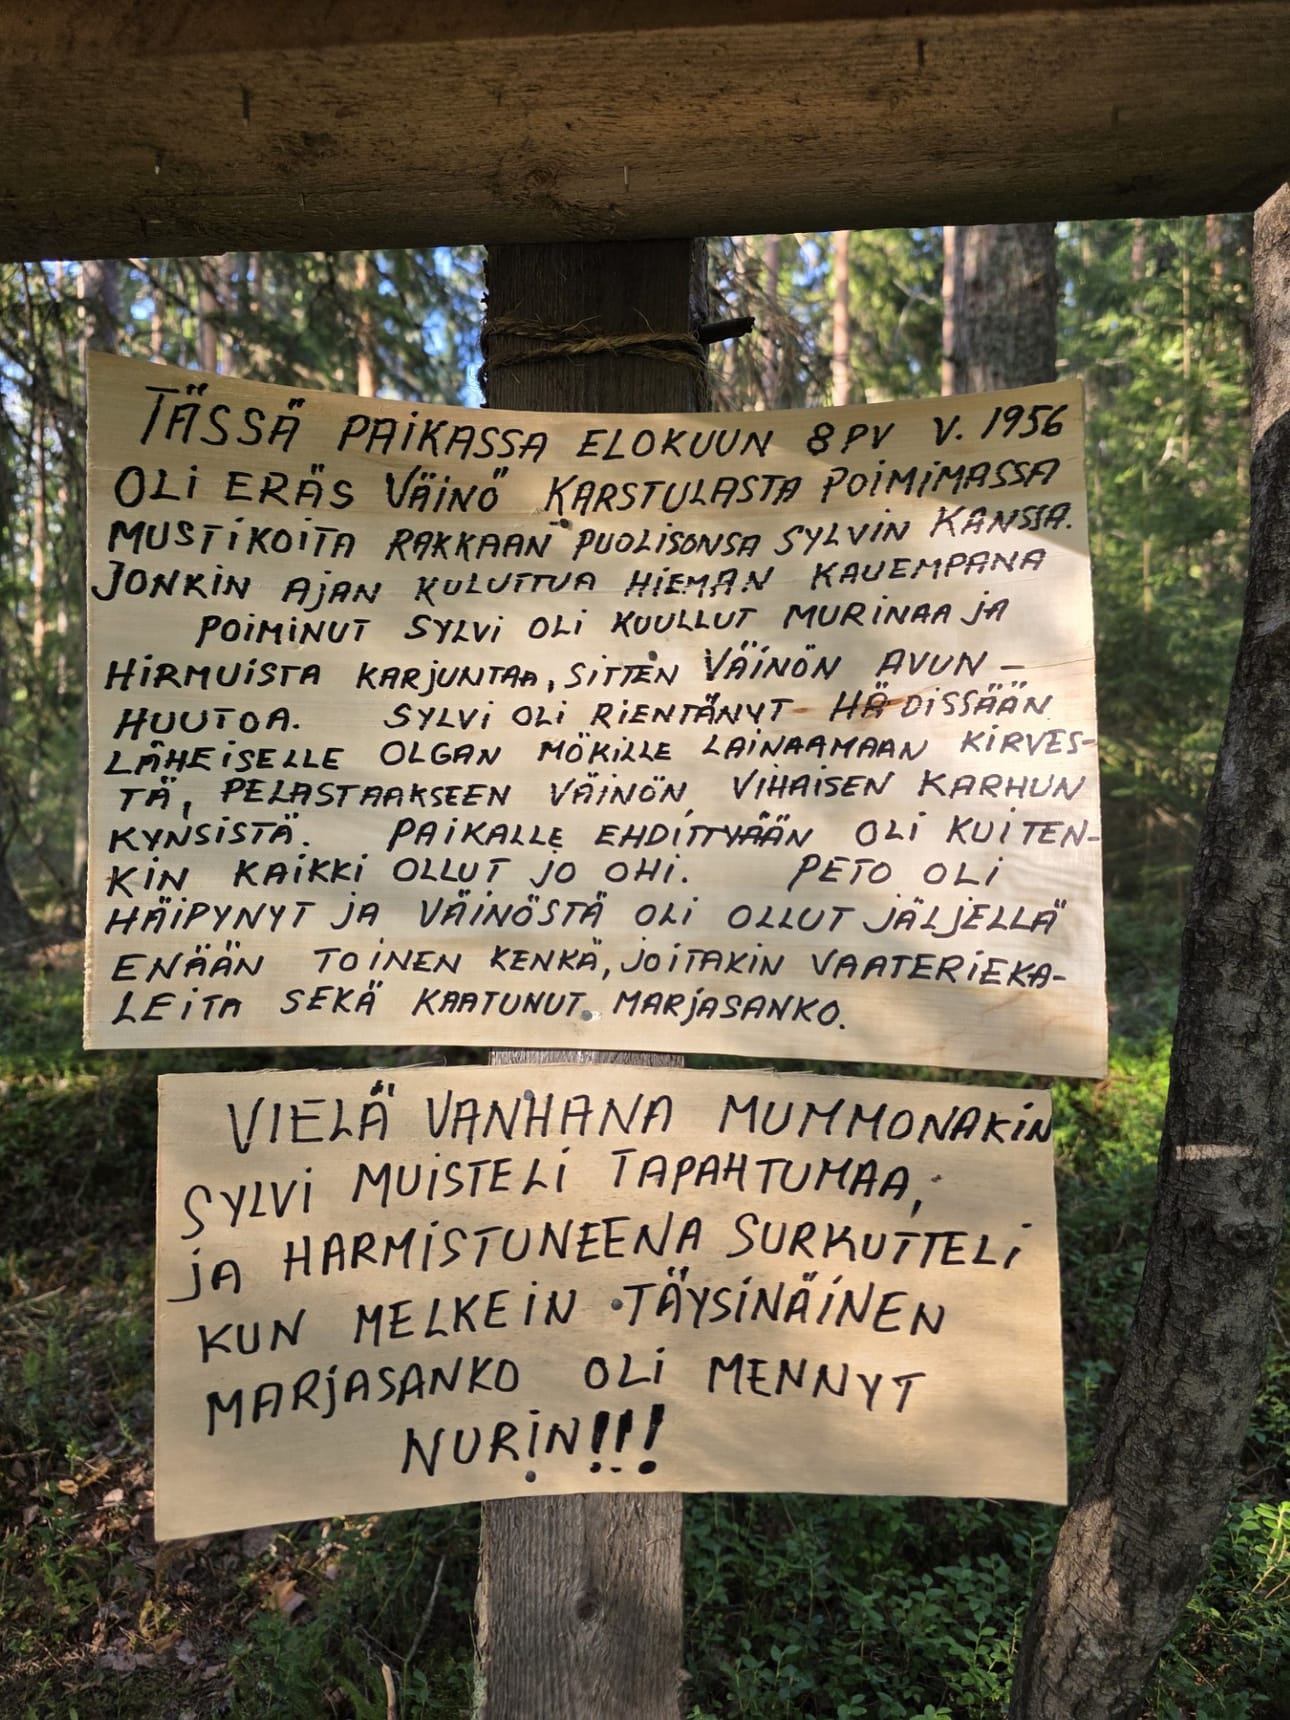 TÄSSÄ PAIKASSA ELOKUUN 8 PV V. 1956
OLI ERÄS VÄINÖ KARSTULASTA POIMIMASSA
MUSTIKOITA RAKKAAN PUOLISONSA SYLVIN KANSSA.
JONKIN AJAN KULUTTUA HIEMAN KAUEMPANA
POIMINUT SYLVI OLI KUULLUT MURINAA JA
HIRMUISTA KARJUNTAA, SITTEN VÄINÖN AVUN-
HUUTOA. SYLVI OLI RIENTÄNYT HÄDISSÄÄN
LÄHEISELLE OLGAN MÖKILLE LAINAAMAAN KIRVES-
TÄ, PELASTAAKSEEN VÄINÖN VIHAISEN KARHUN
KYNSISTÄ. PAIKALLE EHDITTYÄÄN OLI KUITEN-
KIN KAIKKI OLLUT JO OHI. PETO OLI
HÄIPYNYT JA VÄINÖSTÄ OLI OLLUT JÄLJELLÄ
ENÄÄN TOINEN KENKÄ, JOITAKIN VAATERIEKA-
LEITA SEKÄ KAATUNUT MARJASANKO.
VIELÄ VANHANA MUMMONAKIN
SYLVI MUISTELI TAPAHTUMAA,
JA HARMISTUNEENA SURKUTTELI
KUN MELKEIN TÄYSINÄINEN
MARJASANKO OLI MENNYT
NURIN!!!